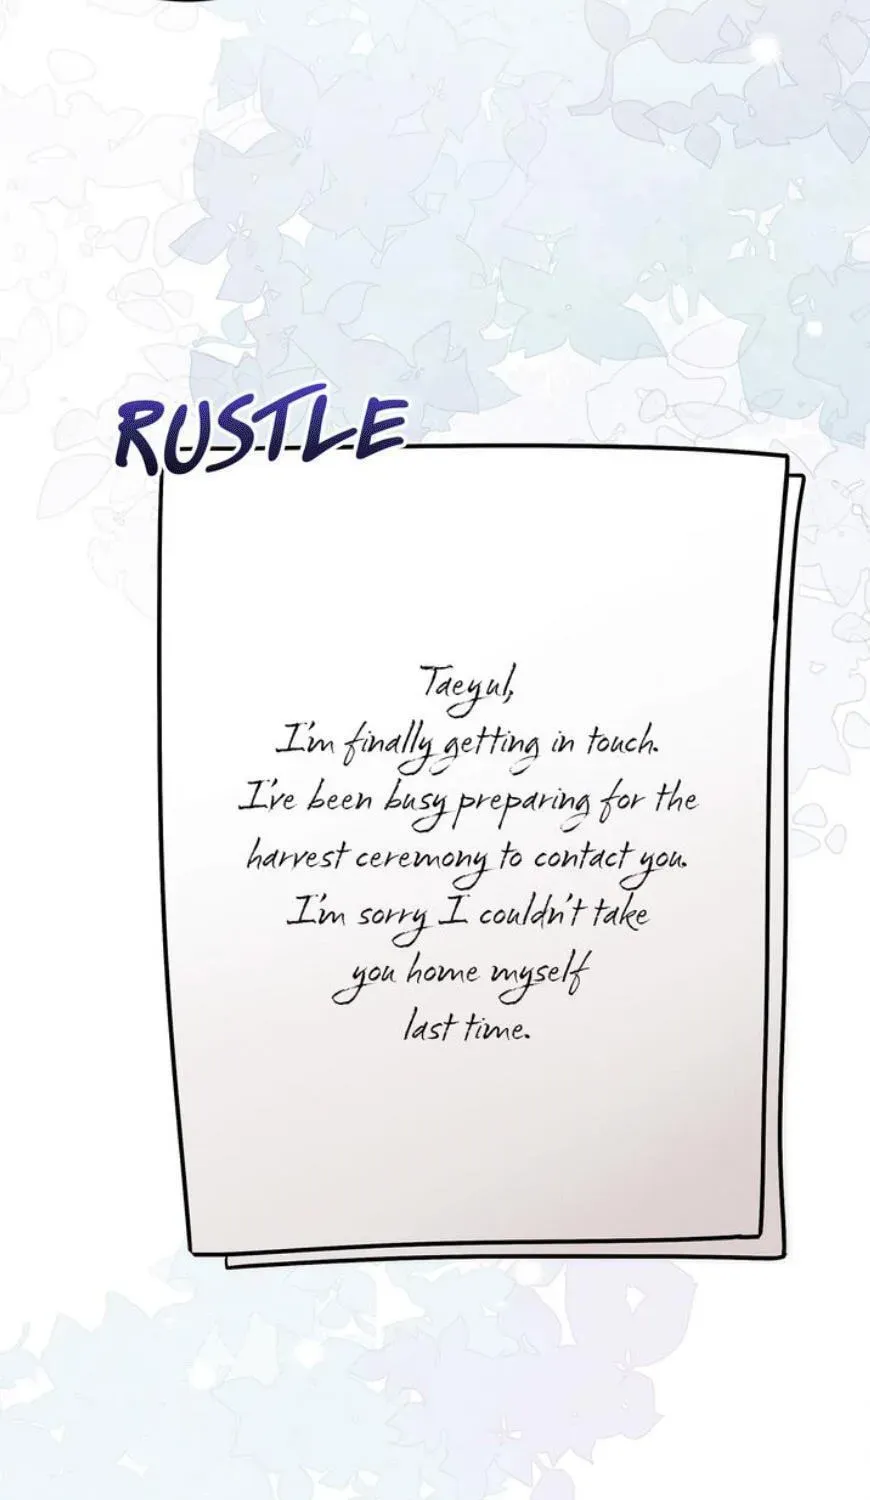 RUSTLE
Taeyul,
I'm finally getting in touch.
I've been busy preparing for the
harvest ceremony to contact you.
I'm sorry I couldn't take
you home myself
last time.